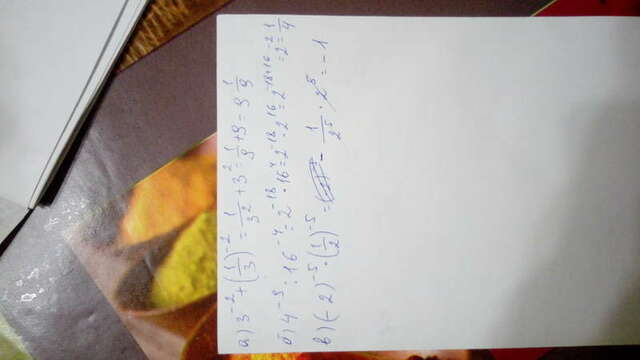 а) 3⁻² + (1/3)⁻² = 1/3² + 3² = 1/9 + 9 = 9 1/9
б) 4⁻⁹ : 16⁻⁴ = 2⁻¹⁸ · 16⁴ = 2⁻¹⁸ · 2¹⁶ = 2⁻¹⁸⁺¹⁶ = 2⁻² = 1/4
в) (-2)⁻⁵ · (1/2)⁻⁵ = - 1/2⁵ · 2⁵ = -1